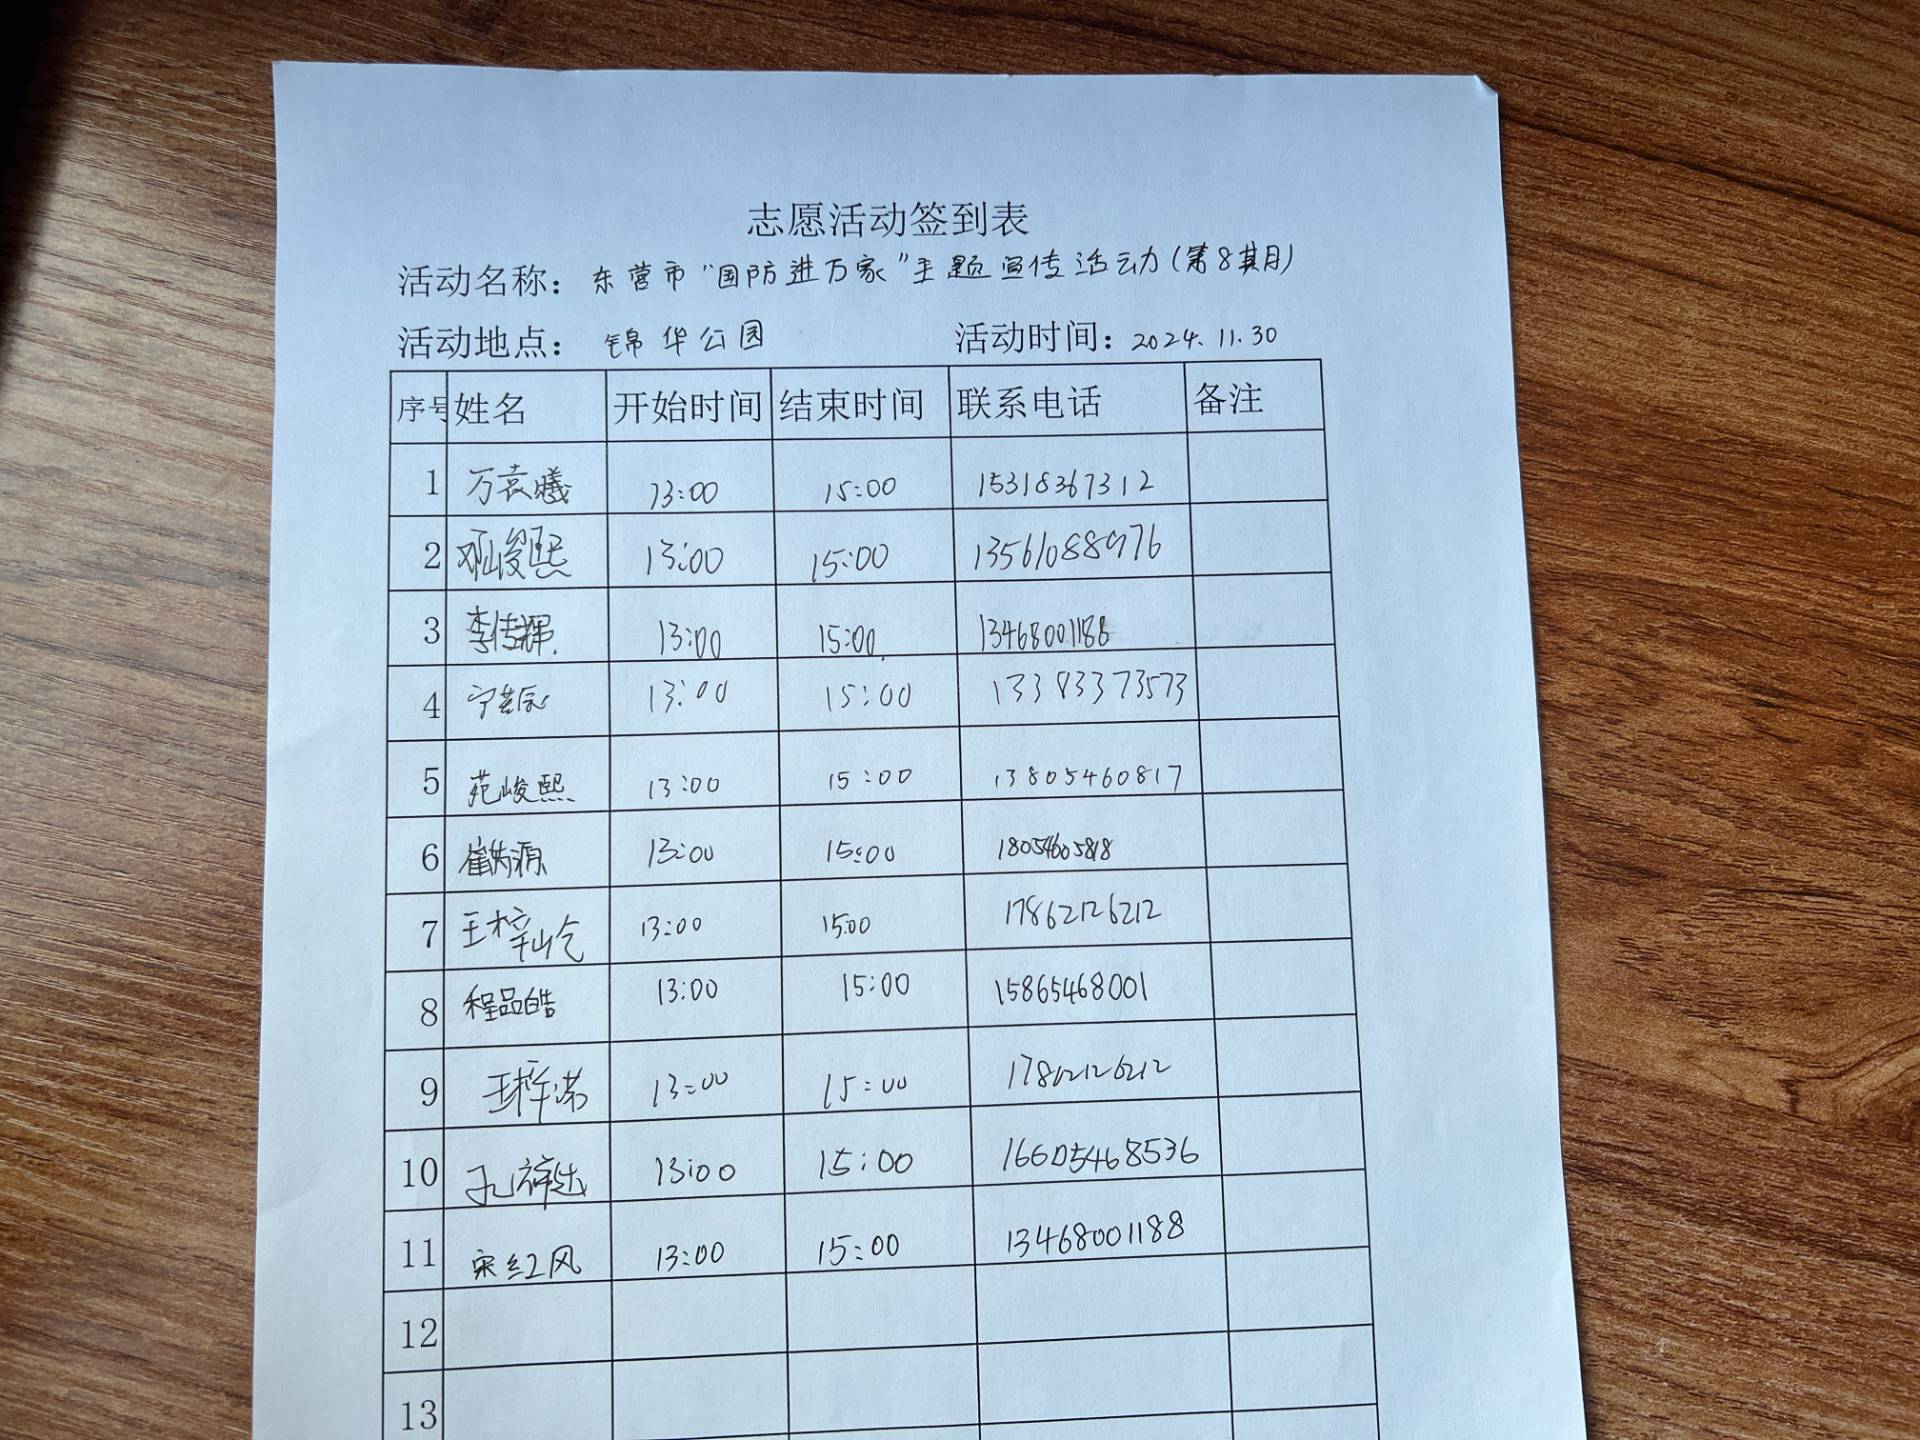 志愿活动签到表
活动名称：东营市“国防进万家”主题宣传活动(第8期)
活动地点：锦华公园 活动时间：2024.11.30
序号 姓名 开始时间 结束时间 联系电话 备注
1 万袁曦 13:00 15:00 15318367312
2 邓峻熙 13:00 15:00 13561088976
3 李传辉 13:00 15:00 13468001188
4 13:00 15:00 13383373573
5 苑峻熙 13:00 15:00 13805460817
6 13:00 15:00 18054605818
7 王梓 13:00 15:00 17862126212
8 程品皓 13:00 15:00 15865468001
9 13:00 15:00 17862126212
10 13:00 15:00 16605468536
11 宋红风 13:00 15:00 13468001188
12
13